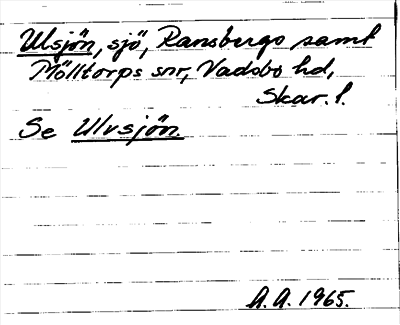 Ulsjön, sjö, Ransbergs samt
Mölltorps snr, Vadsbo hd,
Skar. l.
Se Ulvsjön.
A.A. 1965.